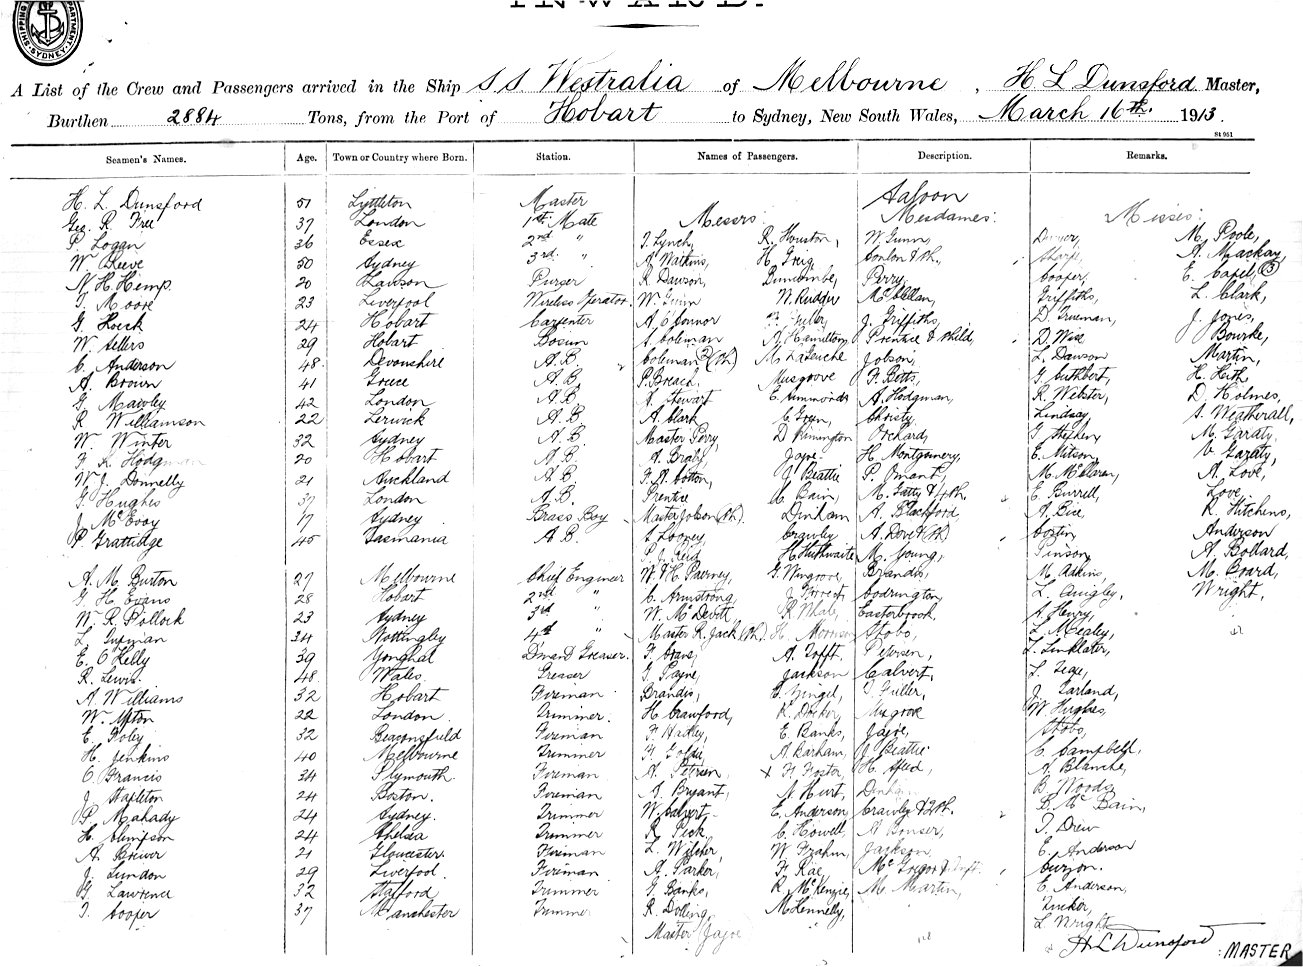 INWARD.
SHIPPING DEPARTMENT SYDNEY
A List of the Crew and Passengers arrived in the Ship S.S Westralia of Melbourne , H L Dunsford Master,
Burthen 2884 Tons, from the Port of Hobart to Sydney, New South Wales, March 16th. 1913.
St 951
Seamen's Names. Age. Town or Country where Born. Station. Names of Passengers. Description. Remarks.
Saloon
H. L. Dunsford 51 Lyttleton Master
Messrs Mesdames: Misses:
Geo. R. Free 37 London 1st Mate
P. Logan 36 Essex 2nd " T. Lynch, R. Houston, W. Gunn, Dwyer, M. Poole,
W. Reeve 50 Sydney 3rd. " A. Watkins, H. Greig, Conlon & Ch. Sharp, A. Mackay,
N. H. Hemp. 20 Lawson Purser R. Dawson, Duncombe, Perry, Cooper, E. Capel, (3)
T. Moore 23 Liverpool Wireless Operator W. Gunn W. Rudder McClellan, Griffiths, L. Clark,
G. 24 Hobart Carpenter A. O'Connor Fuller, J. Griffiths, D. Freeman, J. Jones,
W Sellers 29 Hobart Bosun S. Coleman A. Hamilton, Prentice & Child, D. Wise Bourke,
C. Anderson 48 Devonshire A.B. Coleman 2 (Ch) Jobson, L. Dawson Martin,
A. Brown 41 Greece A.B. P. Breach, Musgrove F. Betts, G. Cuthbert, H. Keith
G. Mawley 42 London A.B. A. Stewart E. Simmonds A. Hodgman, R. Webster, D. Holmes,
R. Williamson 22 Lerwick A.B A. Clark E. Green, Christy, Lindsay, S. Weatherall,
W. Winter 32 Sydney A.B. Master Perry, D. Rimington Orchard, G. Stephen, M. Garaty,
F. R. Hodgman 20 Hobart A.B. A. Brady Jayoe. H. Montgomery, E. Mitson, V. Garaty,
W. J. Donnelly 21 Auckland A.B. F. A. Cotton, J. Beattie P. Omant, M. McLaren, A. Love,
G. Hughes 37 London A.B. Prentice C. Bain, M. Gatty & 4 Ch. E. Burrell, Love,
J. McEvoy 17 Sydney Brass Boy Master Jobson (Ch). Dinham A. Blackford A. Bice, R. Hitchens,
P. Grattidge 45 Tasmania A.B. S. Looney, Crawley A. Dove & (Ch) Costin, Anderson
P. J. Reid H. Huthwaite M. Young, Pinson, A. Bollard,
A. M. Burton 27 Melbourne Chief Engineer W. & H. Paerney, G. Wingrove, Brandis, M. Adkins, M. Board,
G. H. Evans 28 Hobart 2nd " C. Armstrong, J. Forrest, Codrington, L. Quigley, Wright,
W. R. Pollock 23 Sydney 3rd " W. McDevitt R. Male, Easterbrook, A. Henry,
L. Guyman 34 Nottingley 4th " Master R. Jack (Ch). H. Morrison Stobo, L. Mealey,
E. O'Kelly 39 Youghal D'man & Greaser. F. Crane, A. Tofft. Petersen, T. Linklater,
R. Lewis. 48 Wales. Greaser G. Payne, Jackson Calvert, L. Legge,
A. Williams 32 Hobart Fireman Brandis, E. Zingel, T. Fuller, J. Garland,
W. Upton 22 London. Trimmer. H. Crawford, R. Docker, Musgrove W. Hughes,
E. Foley 32 Beaconsfield Fireman F. Hadley, E. Banks, Jayoe, Stobo,
H. Jenkins 40 Melbourne Trimmer F. Goldie, A. Barham, J. Beattie C. Campbell,
C. Francis 34 Plymouth Fireman A. Petersen, x H. Foster, H. Steed, A. Blanche,
J. Stapleton 24 Boston. Fireman A. Bryant, A. Hurt, Dinham B. Woods,
P. Mahady 24 Sydney. Trimmer W. Calvert E. Anderson, Crawley & 2 Ch. B. McBain,
H. Simpson 24 Chelsea Trimmer R. Peck C. Howell, A. Bonser, T. Drew
A. Brewer 21 Gloucester. Fireman L. Wilcher, W. Frahm, Jackson, E. Anderson
J. Lundon 29 Liverpool. Fireman A. Parker, F. Rae, McGregor Curzon.
G. Lawrence 32 Stafford Trimmer G. Banks, R. McKenzie, M. Martin, E. Anderson,
T. Cooper 37 Manchester Trimmer R. Dolling, McKennelly, Tucker,
Master Jayoe L. Wright
H L Dunsford : MASTER